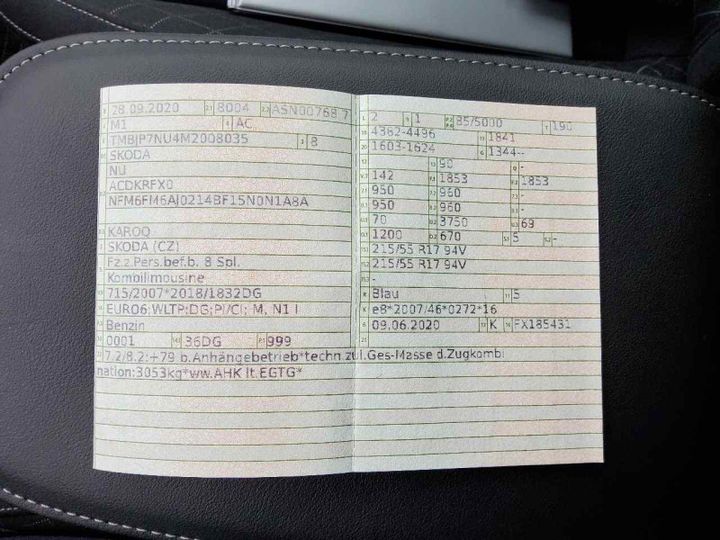 28.09.2020 8004 ASN00768 7
M1 AC
TMBJP7NU4M2008035 8
SKODA
NU
ACDKRFX0
NFM6FM6AJ0214BF15N0N1A8A
KAROQ
SKODA (CZ)
Fz.z.Pers.bef.b. 8 Spl.
Kombilimousine
715/2007*2018/1832DG
EURO6;WLTP;DG;PI/CI; M, N1 I
Benzin
0001 36DG 999
2 1 85/5000 190
4382-4496 1841
1603-1624 1344--
90 -
142 1853 1853
950 960 -
950 960 -
70 3750 69
1200 670 5 -
215/55 R17 94V
215/55 R17 94V
-
Blau 5
e8*2007/46*0272*16
09.06.2020 K FX185431
7.2/8.2:+79 b.Anhängebetrieb*techn.zul.Ges-Masse d.Zugkombi
nation:3053kg*ww.AHK lt.EGTG*